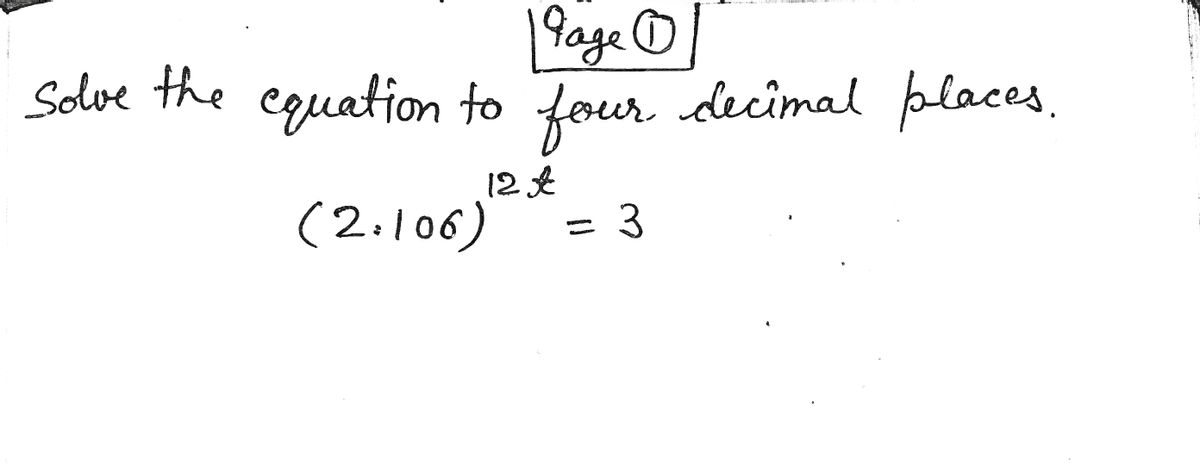 Page ①
Solve the equation to four decimal places.
(2.106)^{12t} = 3